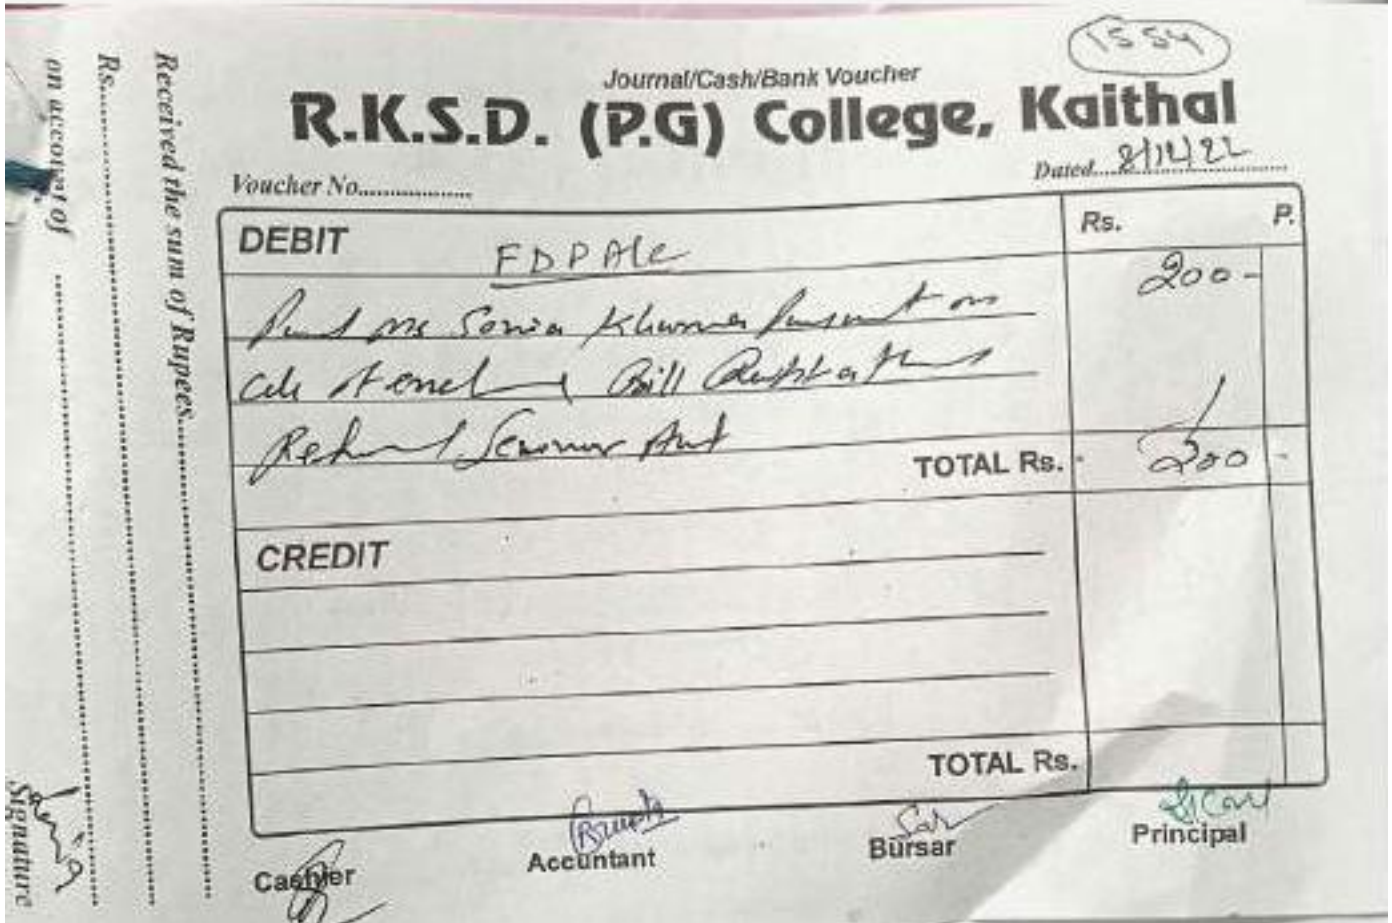 1554
Journal/Cash/Bank Voucher
R.K.S.D. (P.G) College, Kaithal
Voucher No.................. Dated....8/12/22..............
Rs. P.
DEBIT FDP A/c 200-
Paid Ms Sonia Khurana Payment on
Bill
Seminar Amt
TOTAL Rs. 200 -
CREDIT
TOTAL Rs.
Cashier Accuntant Bursar Principal
Received the sum of Rupees
Rs.
on account of
Signature